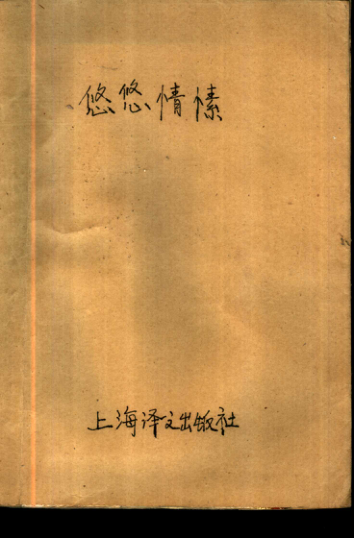 悠悠情愫
上海译文出版社